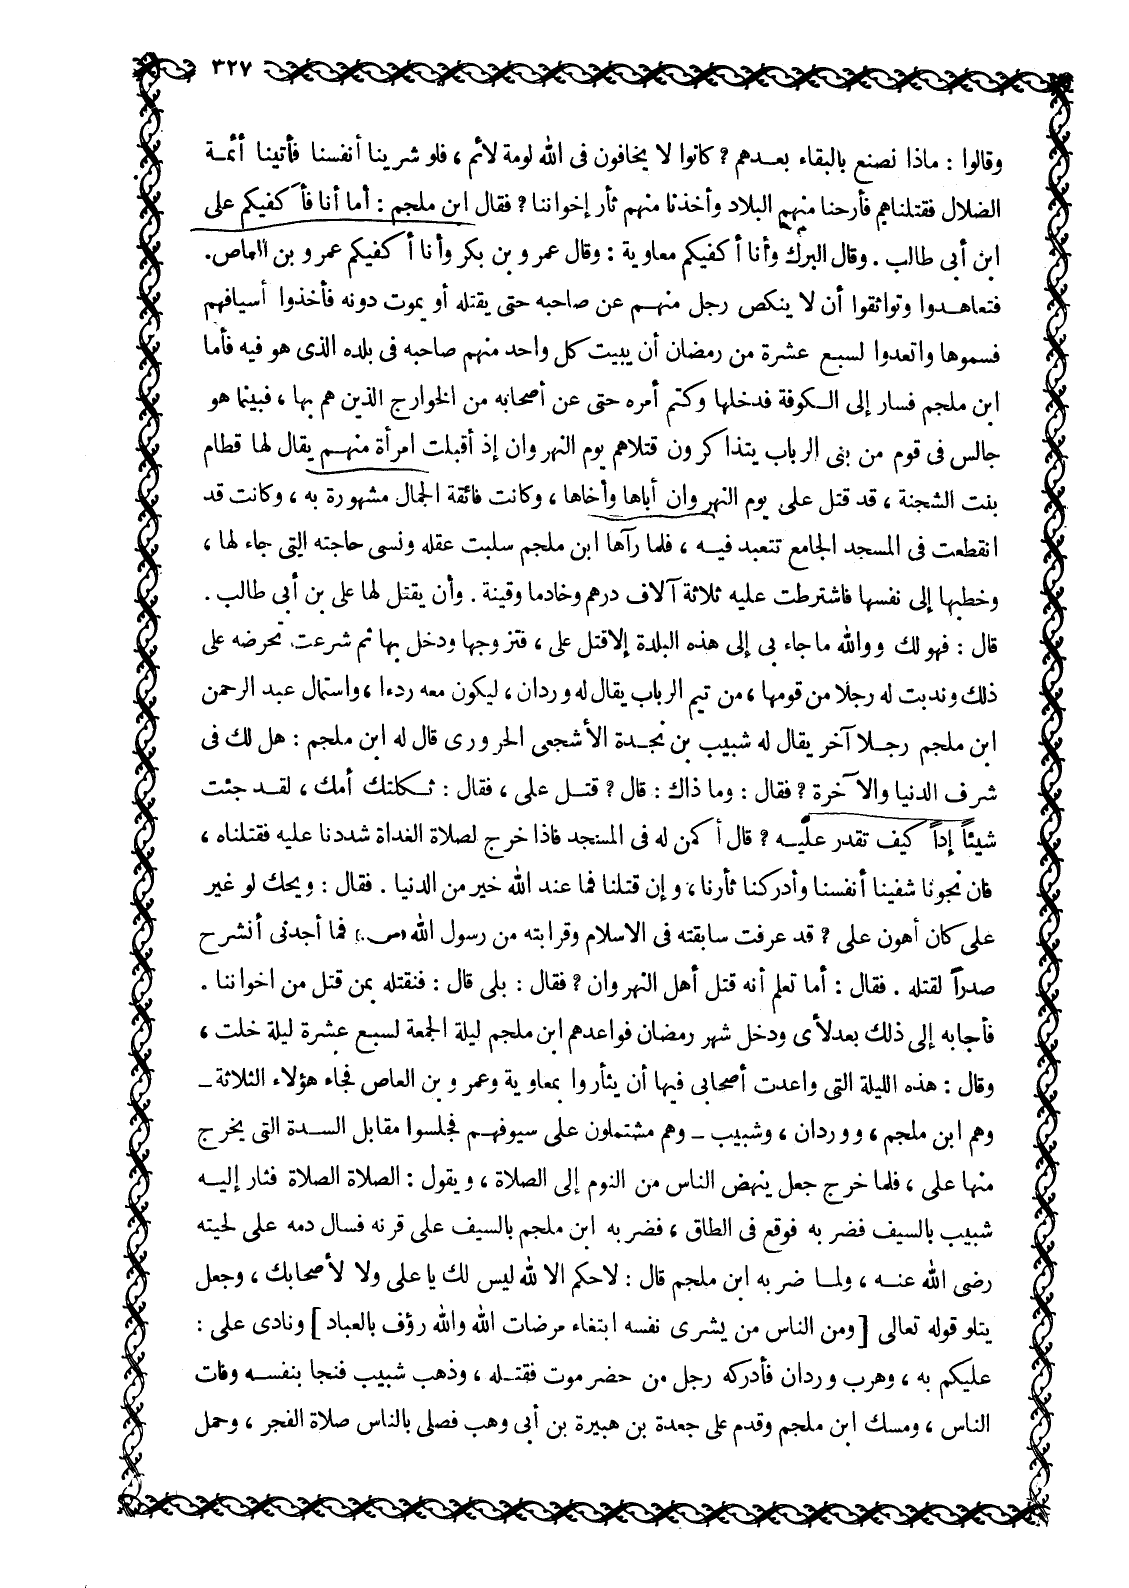 ٣٢٧
وقالوا : ماذا نصنع بالبقاء بعـدهم ? كانوا لا يخافون فى الله لومة لائم ، فلو شرينا أنفسنا فأتينا أئمـة
الضلال فقتلناهم فأرحنا منهم البلاد وأخذنا منهم ثأر إخواننا ? فقال ابن ملجم : أما أنا فأ كفيكم على
ابن أبى طالب . وقال البرك وأنا أ كفيكم معاوية : وقال عمرو بن بكر وأنا أ كفيكم عمرو بن العاص.
فتعاهـدوا وتواثقوا أن لا ينكص رجل منهـم عن صاحبه حتى يقتله أو يموت دونه فأخذوا أسيافهم
فسموها واتعدوا لسبع عشرة من رمضان أن يبيت كل واحد منهم صاحبه فى بلده الذى هو فيه فأما
ابن ملجم فسار إلى الـكوفة فدخلها وكتم أمره حتى عن أصحابه من الخوارج الذين هم بها ، فبينما هو
جالس فى قوم من بنى الرباب يتذاكرون قتلاهم يوم النهروان إذ أقبلت امرأة منهـم يقال لها قطام
بنت الشجنة ، قد قتل على يوم النهروان أباها وأخاها ، وكانت فائقة الجمال مشهورة به ، وكانت قد
انقطعت فى المسجد الجامع تتعبد فيـه ، فلما رآها ابن ملجم سلبت عقله ونسى حاجته التى جاء لها ،
وخطبها إلى نفسها فاشترطت عليه ثلاثة آلاف درهم وخادما وقينة . وأن يقتل لها على بن أبى طالب .
قال : فهو لك ووالله ماجاء بى إلى هذه البلدة إلاقتل على ، فتزوجها ودخل بها ثم شرعت تحرضه على
ذلك وندبت له رجلا من قومها ، من تيم الرباب يقال له وردان ، ليكون معه ردءا ، واستمال عبد الرحمن
ابن ملجم رجـلا آخر يقال له شبيب بن نجـدة الأشجعى الحرورى قال له ابن ملجم : هل لك فى
شرف الدنيا والآخرة ? فقال : وما ذاك : قال ? قتـل على ، فقال : ثـكلتك أمك ، لقـد جئت
شيئاً إداً كيف تقدر عليـه ? قال أكمن له فى المسجد فاذا خرج لصلاة الغداة شددنا عليه فقتلناه ،
فان نجونا شفينا أنفسنا وأدركنا ثأرنا ، وإن قتلنا فما عند الله خير من الدنيا . فقال : ويحك لو غير
على كان أهون على ? قد عرفت سابقته فى الاسلام وقرابته من رسول الله (ص) فما أجدنى أنشرح
صدراً لقتله . فقال : أما تعلم أنه قتل أهل النهروان ? فقال : بلى قال : فنقتله بمن قتل من اخواننا .
فأجابه إلى ذلك بعدلأى ودخل شهر رمضان فواعدهم ابن ملجم ليلة الجمعة لسبع عشرة ليلة خلت ،
وقال : هذه الليلة التى واعدت أصحابى فيها أن يثأروا بمعاوية وعمرو بن العاص فجاء هؤلاء الثلاثة ـ
وهم ابن ملجم ، ووردان ، وشبيب ـ وهم مشتملون على سيوفهـم فجلسوا مقابل السـدة التى يخرج
منها على ، فلما خرج جعل ينهض الناس من النوم إلى الصلاة ، ويقول : الصلاة الصلاة فثار إليـه
شبيب بالسيف فضربه فوقع فى الطاق ، فضربه ابن ملجم بالسيف على قرنه فسال دمه على لحيته
رضى الله عنـه ، ولمـا ضربه ابن ملجم قال : لاحكم الا لله ليس لك يا على ولا لأصحابك ، وجعل
يتلو قوله تعالى [ ومن الناس من يشرى نفسه ابتغاء مرضات الله والله رؤف بالعباد ] ونادى على :
عليكم به ، وهرب وردان فأدركه رجل من حضرموت فقتـله ، وذهب شبيب فنجا بنفسـه وفات
الناس ، ومسك ابن ملجم وقدم على جعدة بن هبيرة بن أبى وهب فصلى بالناس صلاة الفجر ، وحمل